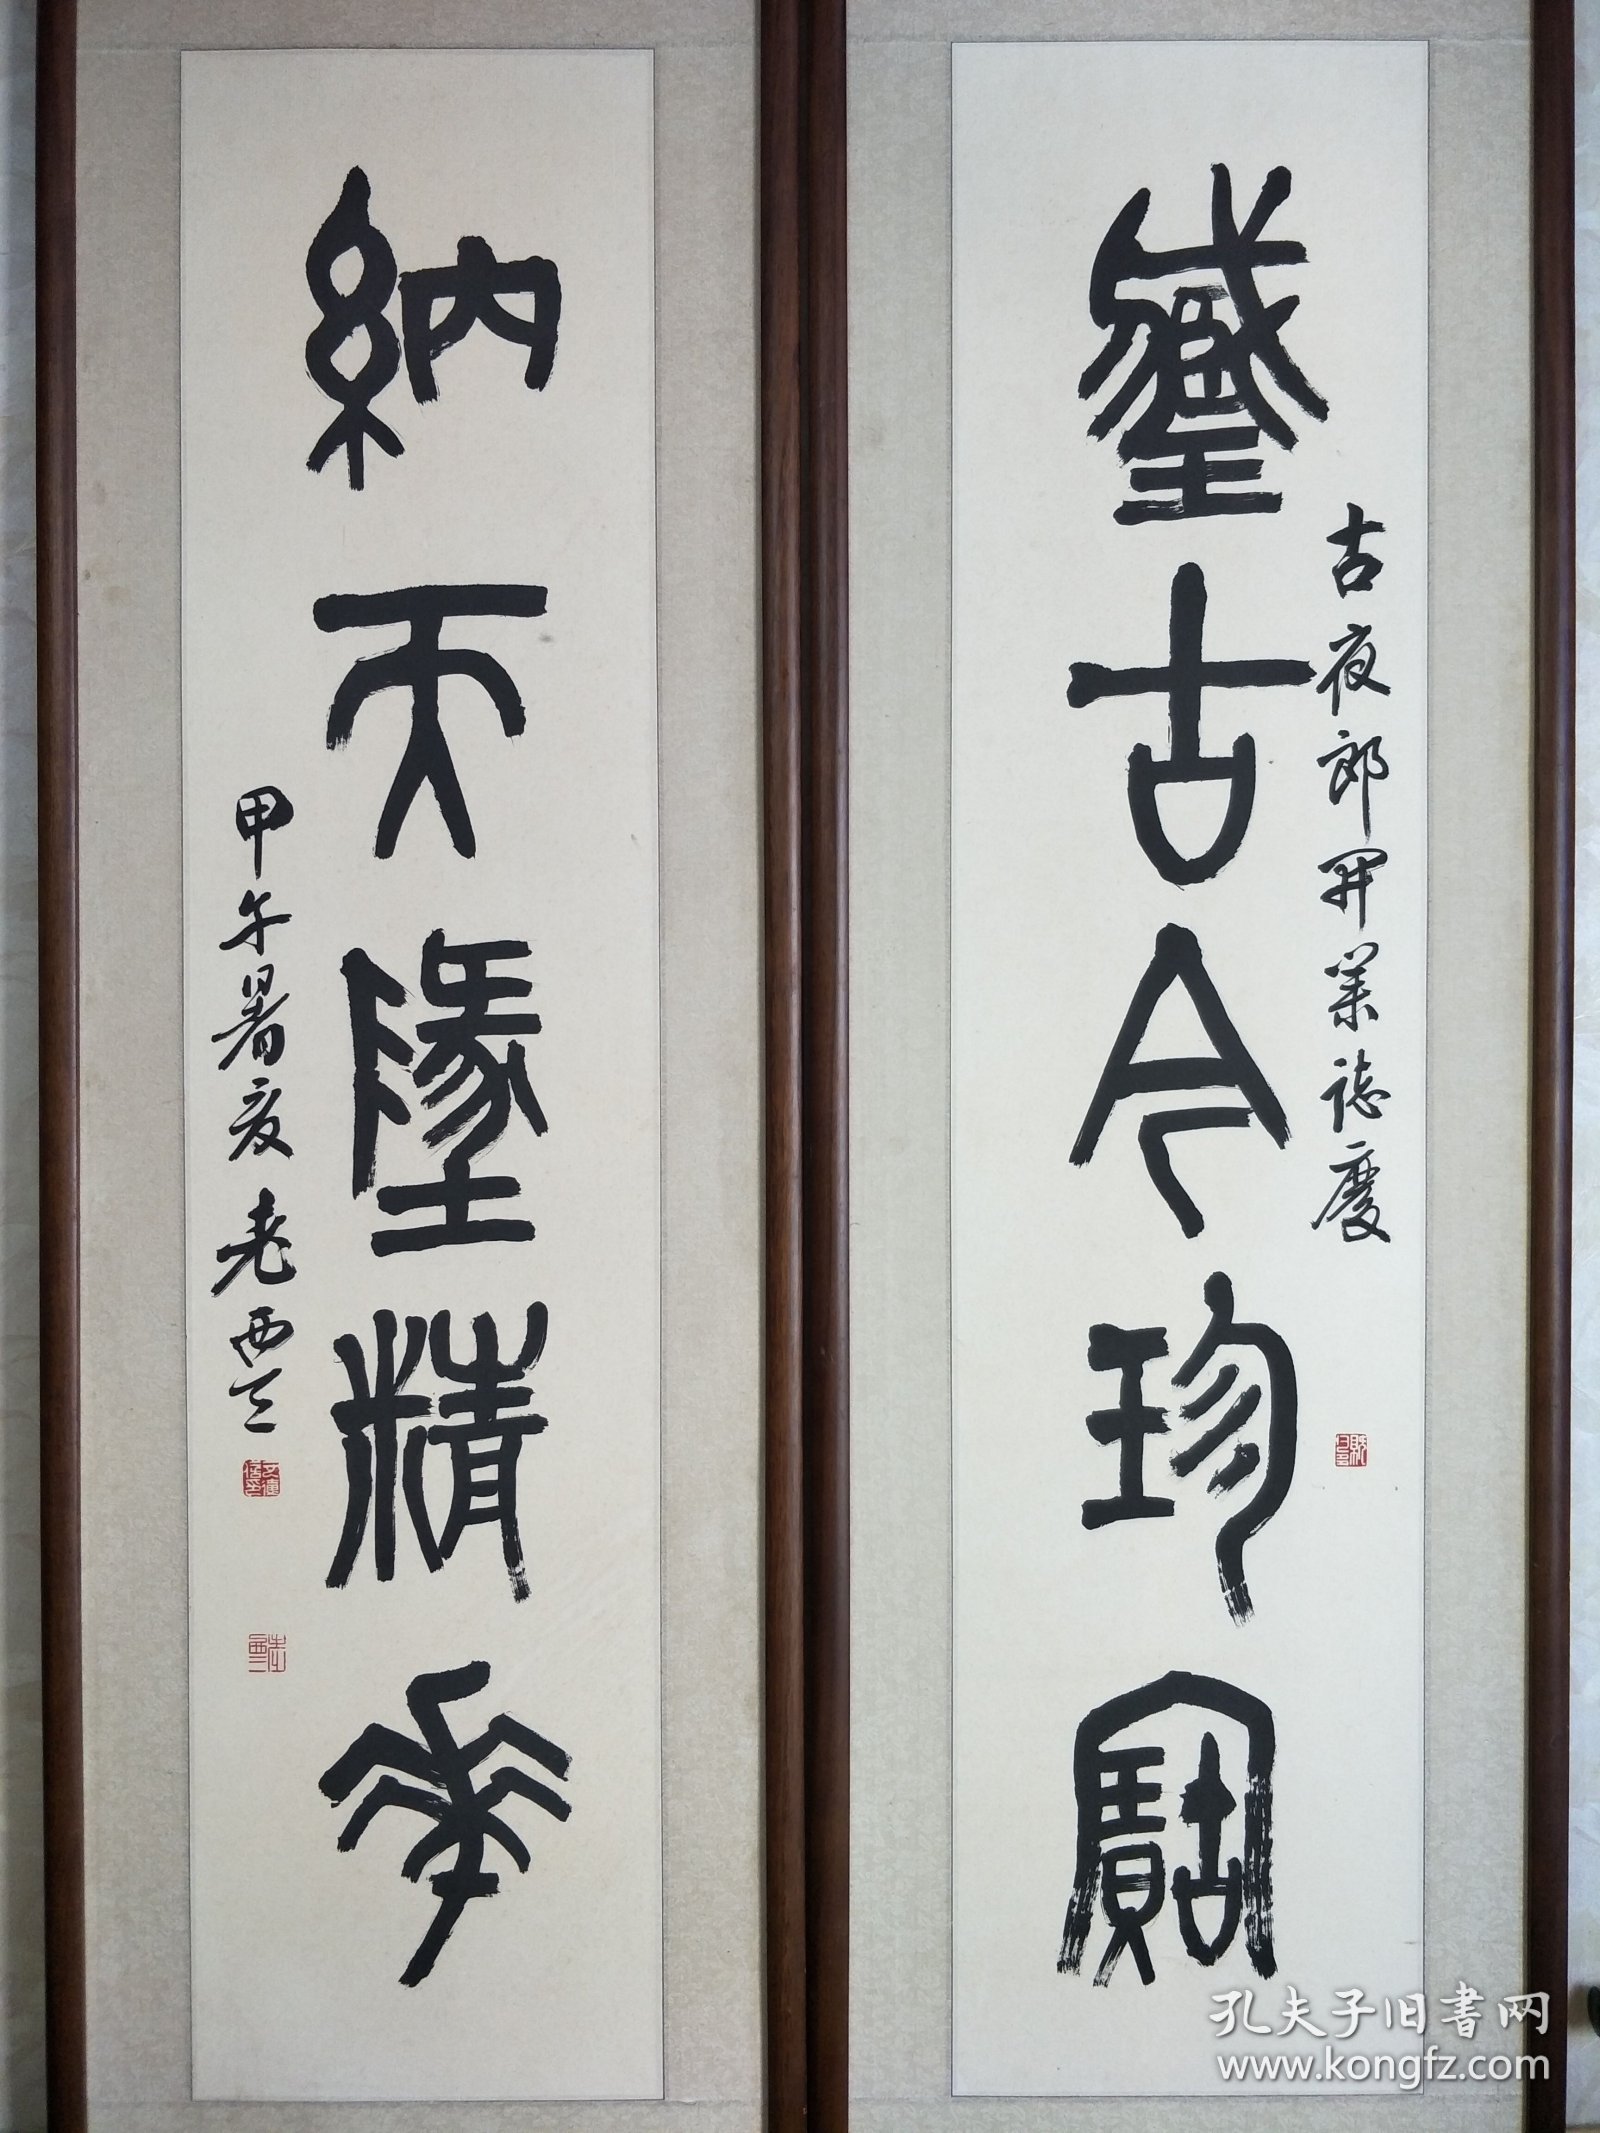 藏古今珍寶
古夜郎開業誌慶
納天墬精華
甲午暑夏 老西
孔夫子旧书网
www.kongfz.com